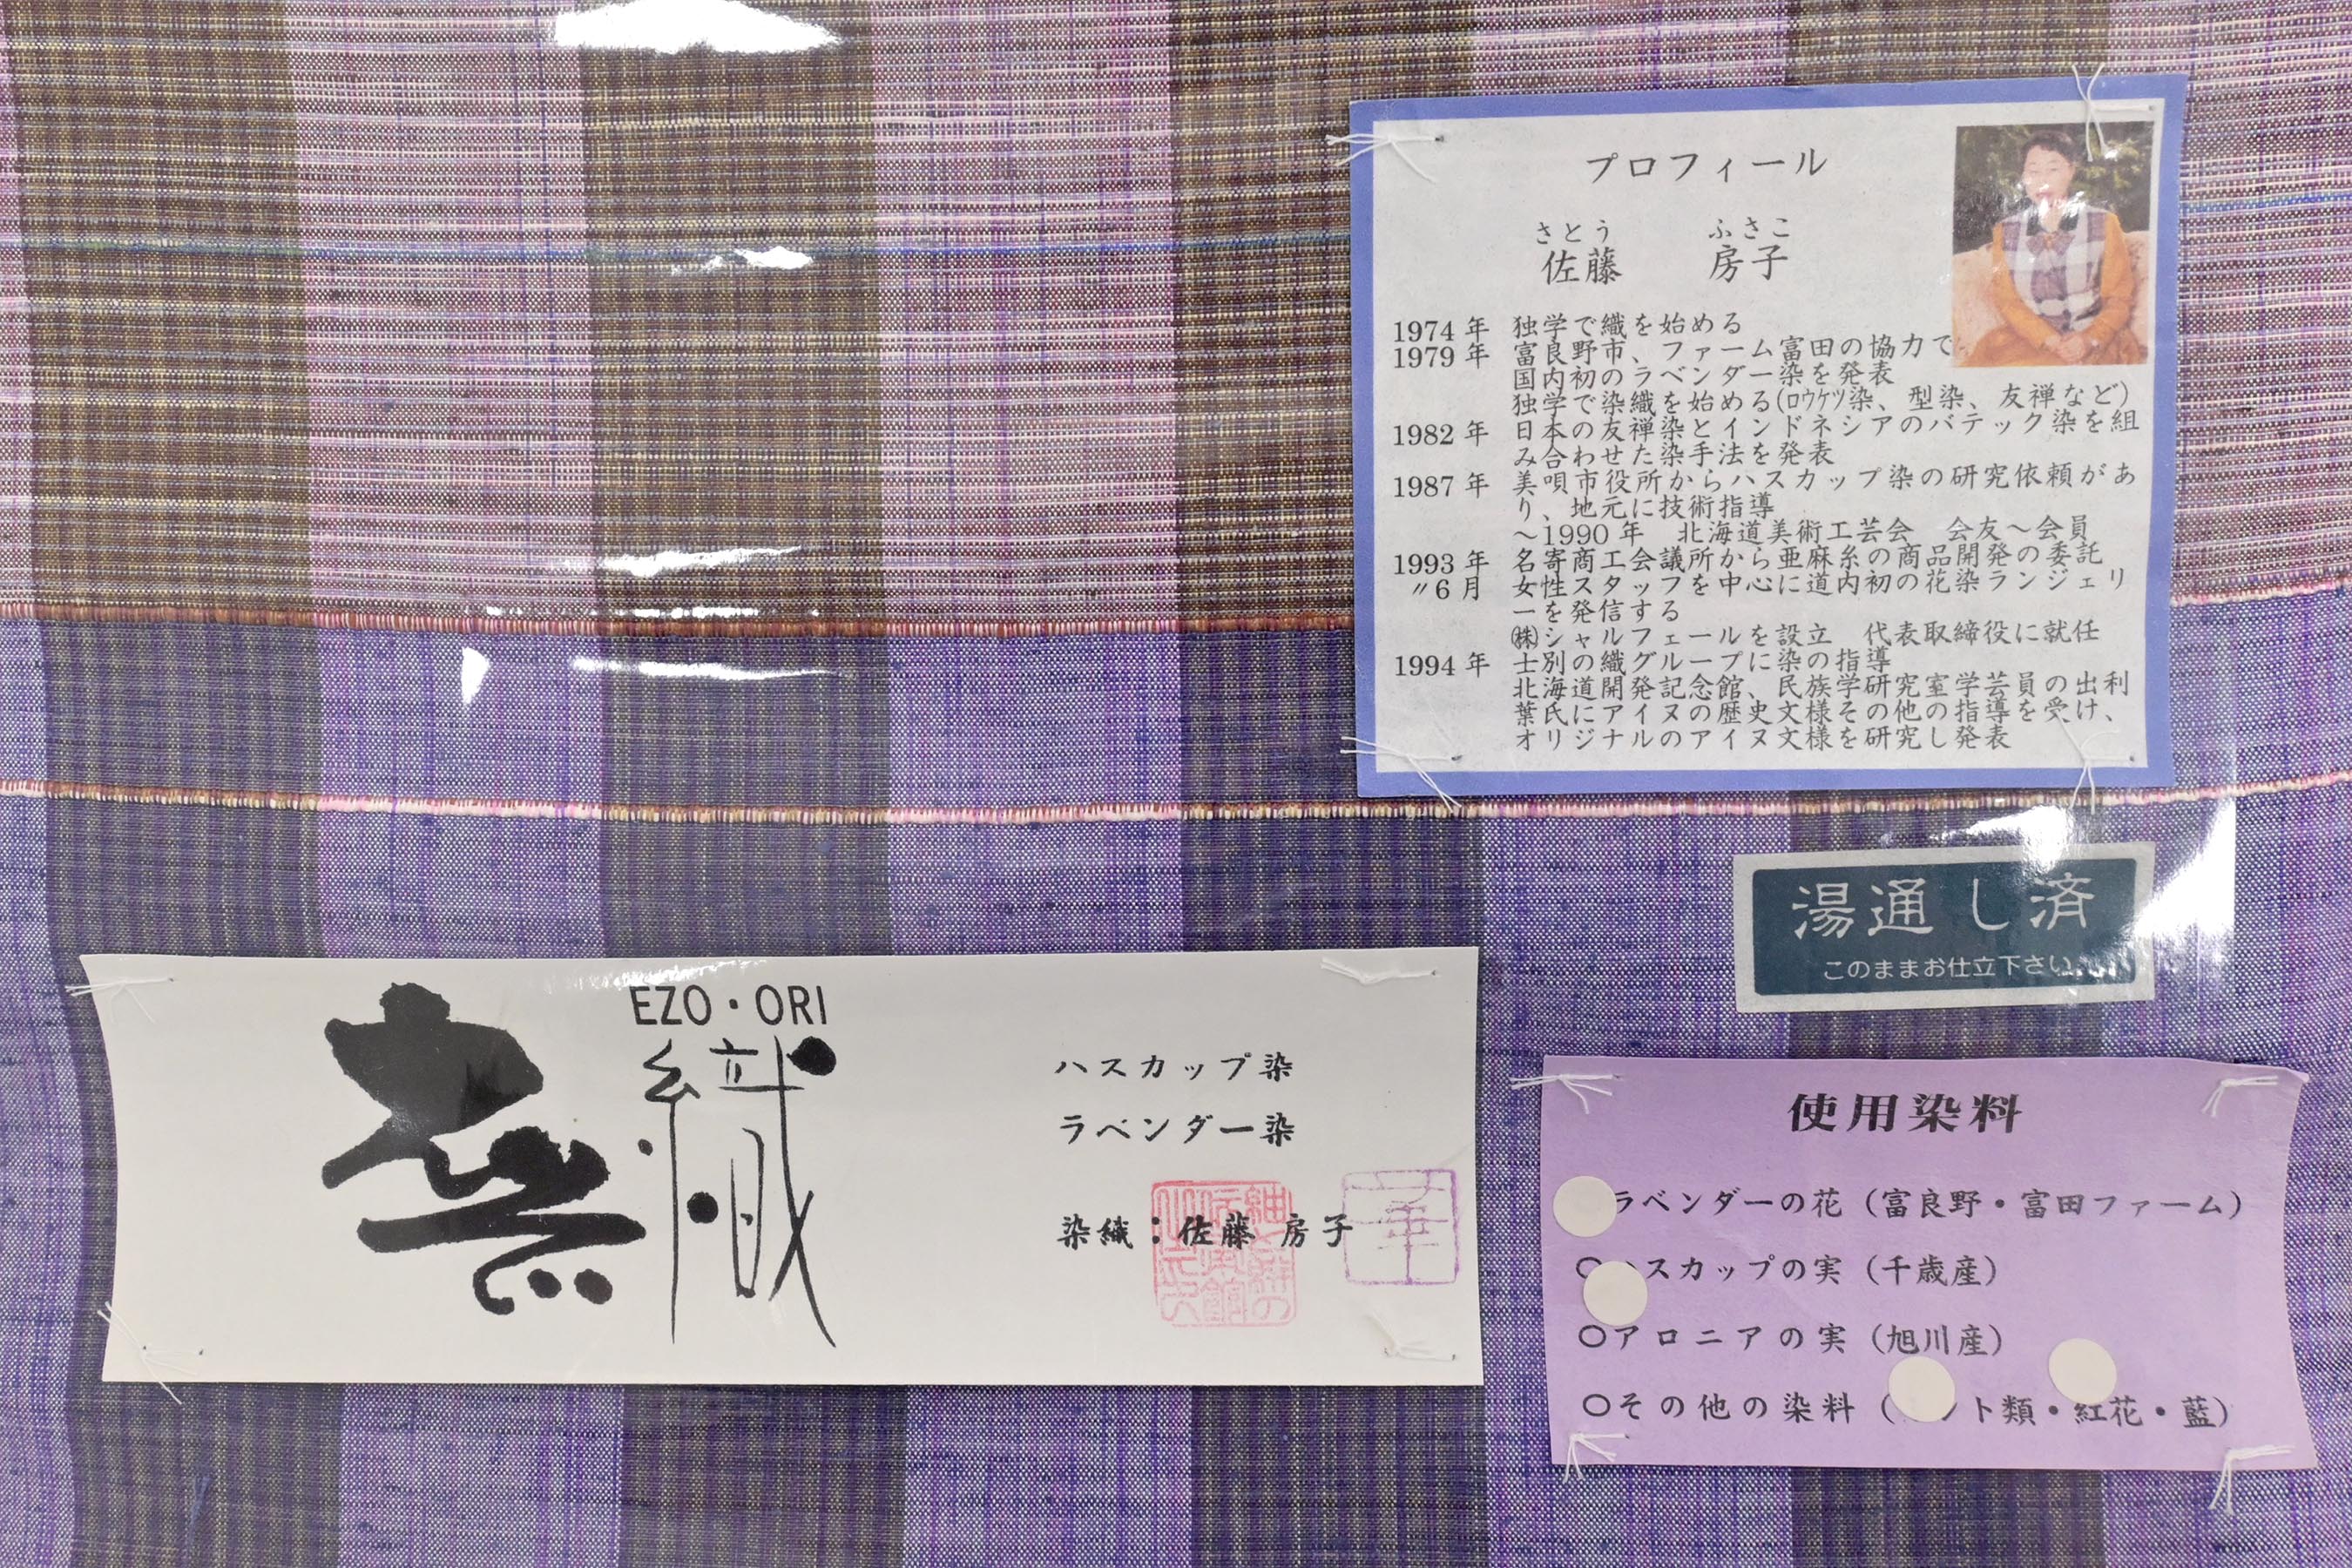 プロフィール
さとう ふさこ
佐藤 房子
1974年 独学で織を始める
1979年 富良野市、ファーム富田の協力で
国内初のラベンダー染を発表
独学で染織を始める(ﾛｳｹﾂ染、型染、友禅など)
1982年 日本の友禅染とインドネシアのバテック染を組
み合わせた染手法を発表
1987年 美唄市役所からハスカップ染の研究依頼があ
り、地元に技術指導
～1990年 北海道美術工芸会 会友～会員
1993年 名寄商工会議所から亜麻糸の商品開発の委託
〃6月 女性スタッフを中心に道内初の花染ランジェリ
ーを発信する
㈱シャルフェールを設立 代表取締役に就任
1994年 士別の織グループに染の指導
北海道開発記念館、民族学研究室学芸員の出利
葉氏にアイヌの歴史文様その他の指導を受け、
オリジナルのアイヌ文様を研究し発表
湯通し済
このままお仕立下さい
EZO・ORI
織
ハスカップ染
ラベンダー染
染織：佐藤 房子
華
使用染料
ラベンダーの花（富良野・富田ファーム）
○ハスカップの実（千歳産）
○アロニアの実（旭川産）
○その他の染料（ント類・紅花・藍）